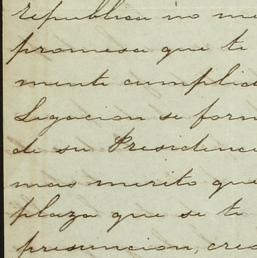 republica no me
promesa que te
mente cumplid
Legacion se form
de su Presidenc
mas merito que
plaza que se te
presuncion, creo